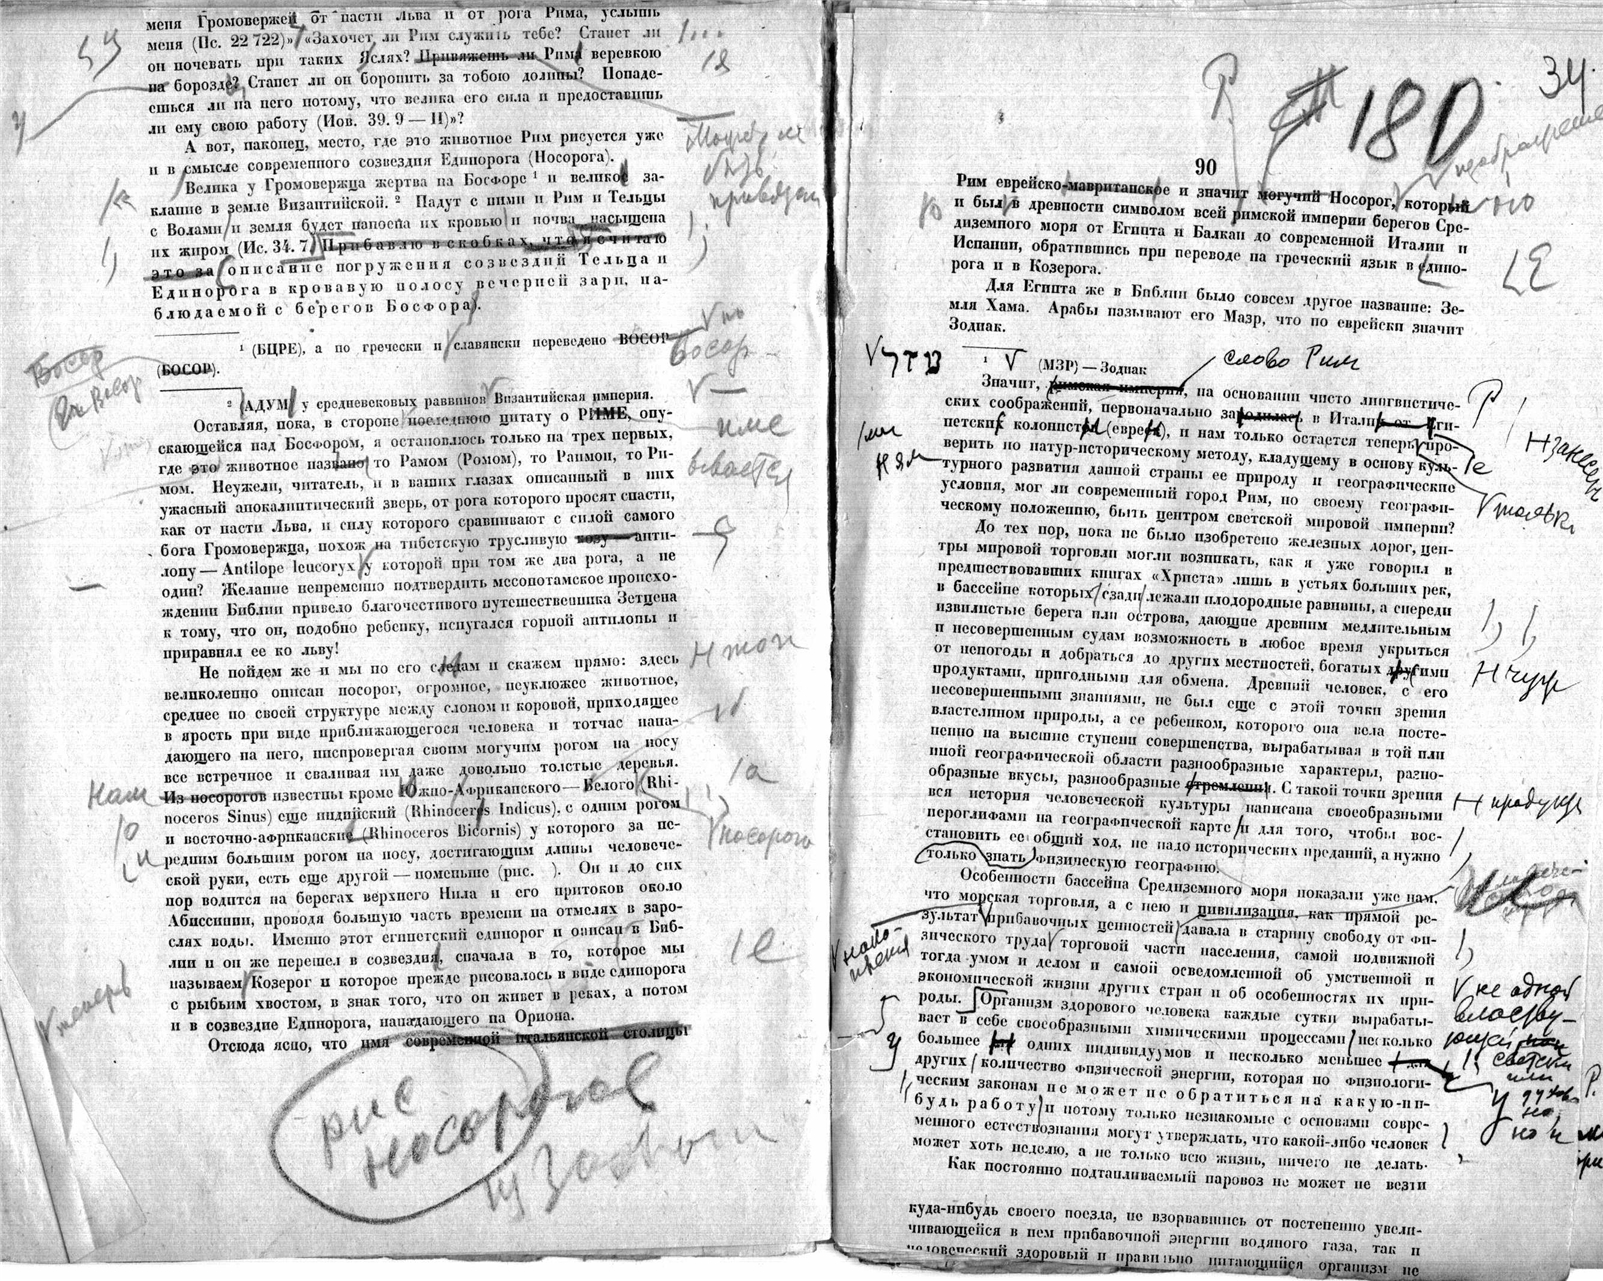 меня Громовержец от пасти Льва и от рога Рима, услышь
меня (Пс. 22 722)» «Захочет ли Рим служить тебе? Станет ли
он ночевать при таких Яслях? Привяжешь ли Рима веревкою
на борозде? Станет ли он боронить за тобою долины? Понаде-
ешься ли на него потому, что велика его сила и предоставишь
ли ему свою работу (Иов. 39. 9 — II)»?
А вот, наконец, место, где это животное Рим рисуется уже
и в смысле современного созвездия Единорога (Носорога).
Велика у Громовержца жертва на Босфоре ¹ и великое за-
клание в земле Византийской. ² Падут с ними и Рим и Тельцы
с Волами и земля будет напоена их кровью и почва насыщена
их жиром (Ис. 34. 7) Прибавлю в скобках, что я считаю
это за описание погружения созвездий Тельца и
Единорога в кровавую полосу вечерней зари, на-
блюдаемой с берегов Босфора).
¹ (БЦРЕ), а по гречески и славянски переведено ВОСОР
(БОСОР).
² (АДУМ) у средневековых раввинов Византийская империя.
Оставляя, пока, в стороне последнюю цитату о РИМЕ, опу-
скающейся над Босфором, я остановлюсь только на трех первых,
где это животное названо то Рамом (Ромом), то Раимом, то Ри-
мом. Неужели, читатель, и в ваших глазах описанный в них
ужасный апокалиптический зверь, от рога которого просят спасти,
как от пасти Льва, и силу которого сравнивают с силой самого
бога Громовержца, похож на тибетскую трусливую козу — анти-
лопу — Antilope leucoryx у которой при том же два рога, а не
один? Желание непременно подтвердить месопотамское происхо-
ждении Библии привело благочестивого путешественника Зетцена
к тому, что он, подобно ребенку, испугался горной антилопы и
приравнял ее ко льву!
Не пойдем же и мы по его следам и скажем прямо: здесь
великолепно описан носорог, огромное, неуклюжее животное,
среднее по своей структуре между слоном и коровой, приходящее
в ярость при виде приближающегося человека и тотчас напа-
дающего на него, ниспровергая своим могучим рогом на носу
все встречное и сваливая им даже довольно толстые деревья.
Из носорогов известны кроме Южно-Африканского — Белого (Rhi-
noceros Sinus) еще индийский (Rhinoceros Indicus), с одним рогом
и восточно-африканские (Rhinoceros Bicornis) у которого за пе-
редним большим рогом на носу, достигающим длины человече-
ской руки, есть еще другой — поменьше (рис. ). Он и до сих
пор водится на берегах верхнего Нила и его притоков около
Абиссинии, проводя большую часть времени на отмелях в заро-
слях воды. Именно этот египетский единорог и описан в Биб-
лии и он же перешел в созвездия, сначала в то, которое мы
называем Козерог и которое прежде рисовалось в виде единорога
с рыбьим хвостом, в знак того, что он живет в реках, а потом
и в созвездие Единорога, нападающего на Ориона.
Отсюда ясно, что имя современной итальянской столицы
рис
носорогов
34
180
90
Рим еврейско-мавританское и значит могучий Носорог, который
и был в древности символом всей римской империи берегов Сре-
диземного моря от Египта и Балкан до современной Италии и
Испании, обратившись при переводе на греческий язык в едино-
рога и в Козерога.
Для Египта же в Библии было совсем другое название: Зе-
мля Хама. Арабы называют его Мазр, что по еврейски значит
Зодиак.
¹ (МЗР) — Зодиак
слово Рим
Значит, римская империя, на основании чисто лингвистиче-
ских соображений, первоначально зародилась в Италии от Еги-
петских колонистов (евреев), и нам только остается теперь про-
верить по натур-историческому методу, кладущему в основу куль-
турного развития данной страны ее природу и географические
условия, мог ли современный город Рим, по своему географи-
ческому положению, быть центром светской мировой империи?
До тех пор, пока не было изобретено железных дорог, цен-
тры мировой торговли могли возникать, как я уже говорил в
предшествовавших книгах «Христа» лишь в устьях больших рек,
в бассейне которых сзади лежали плодородные равнины, а спереди
извилистые берега или острова, дающие древним медлительным
и несовершенным судам возможность в любое время укрыться
от непогоды и добраться до других местностей, богатых другими
продуктами, пригодными для обмена. Древний человек, с его
несовершенными знаниями, не был еще с этой точки зрения
властелином природы, а ее ребенком, которого она вела посте-
пенно на высшие ступени совершенства, вырабатывая в той или
иной географической области разнообразные характеры, разно-
образные вкусы, разнообразные стремления. С такой точки зрения
вся история человеческой культуры написана своеобразными
иероглифами на географической карте и для того, чтобы вос-
становить ее общий ход, не надо исторических преданий, а нужно
только знать физическую географию.
Особенности бассейна Средиземного моря показали уже нам,
что морская торговля, а с нею и цивилизация, как прямой ре-
зультат прибавочных ценностей давала в старину свободу от фи-
зического труда торговой части населения, самой подвижной
тогда умом и делом и самой осведомленной об умственной и
экономической жизни других стран и об особенностях их при-
роды. Организм здорового человека каждые сутки вырабаты-
вает в себе своеобразными химическими процессами несколько
большее у одних индивидуумов и несколько меньшее для
других количество физической энергии, которая по физиологи-
ческим законам не может не обратиться на какую-ни-
будь работу и потому только незнакомые с основами совре-
менного естествознания могут утверждать, что какой-либо человек
может хоть неделю, а не только всю жизнь, ничего не делать.
Как постоянно подтапливаемый паровоз не может не везти
куда-нибудь своего поезда, не взорвавшись от постепенно увели-
чивающейся в нем прибавочной энергии водяного газа, так и
человеческий здоровый и правильно питающийся организм не